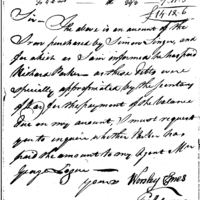 £14.12.6
Sir— The above is an amount of the
Iron purchased by Simeon Singer, and
for which as I am informed he has paid
Richard Parker as those Debts were
specially appropriated by the
for the payment of the balance
due on my amount, I must request
you to enquire whether Parker has
paid the amount to my Agent Mr
George Logue —
yours Worsley Emes